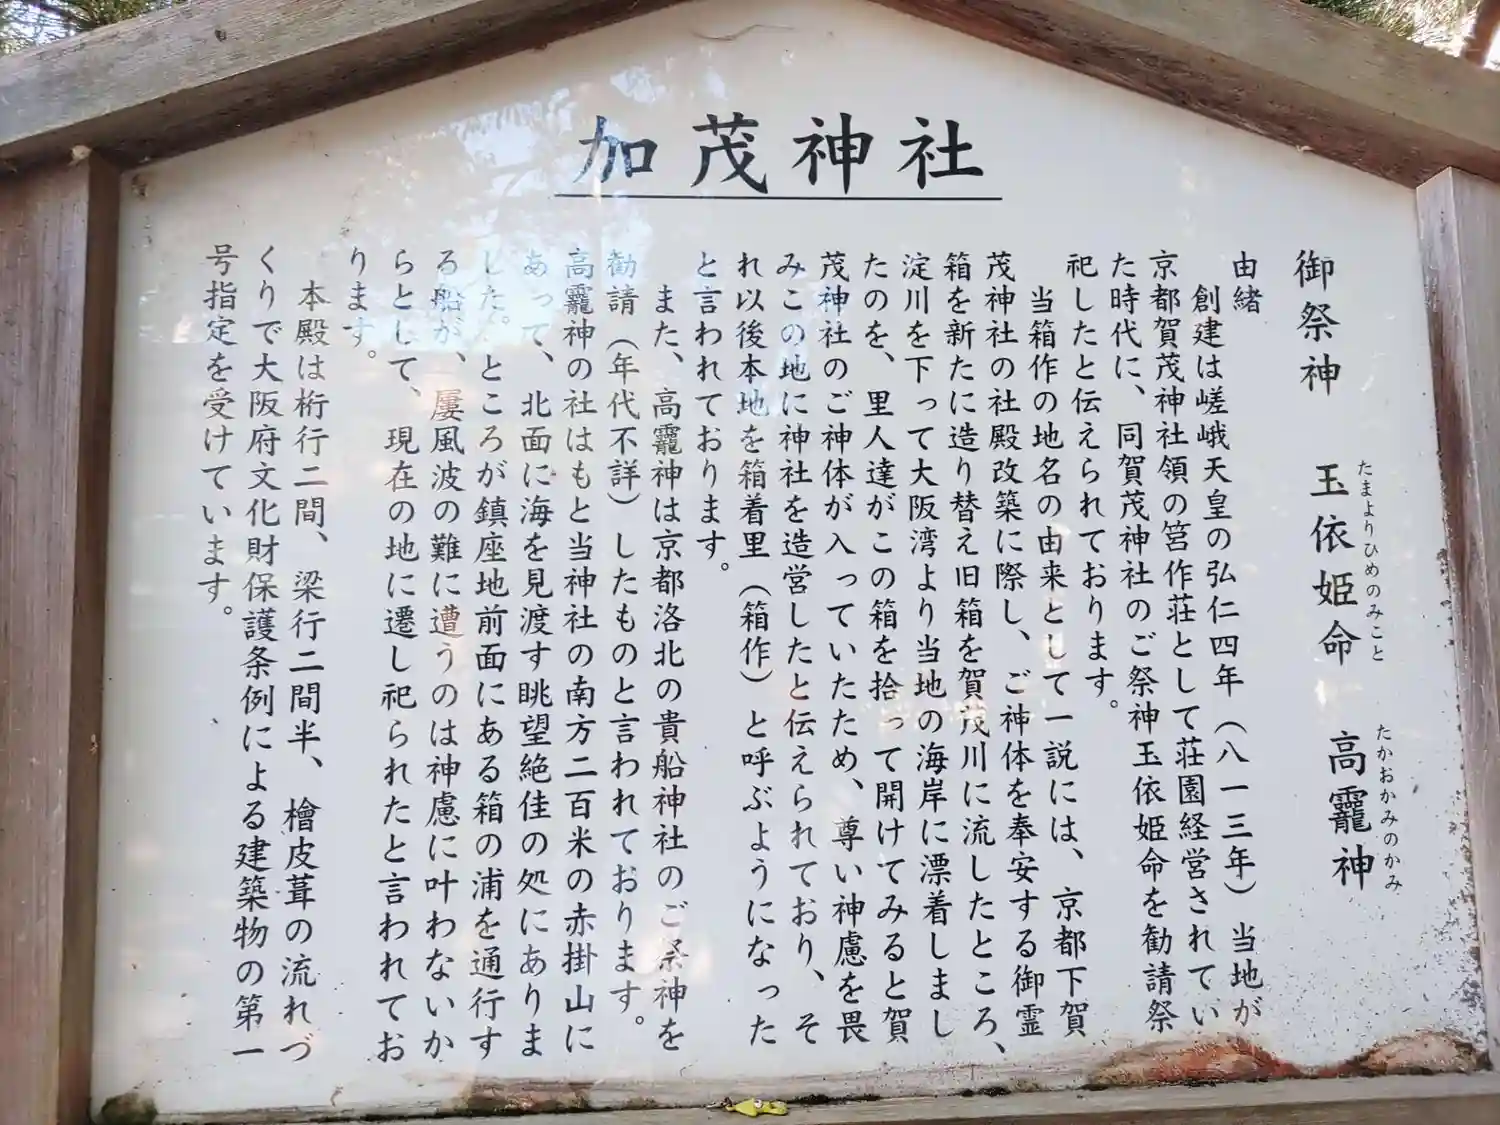 加茂神社
御祭神 玉依姫命 高龗神
たまよりひめのみこと たかおかみのかみ
由緒
創建は嵯峨天皇の弘仁四年(八一三年)当地が
京都賀茂神社領の筥作荘として荘園経営されてい
た時代に、同賀茂神社のご祭神玉依姫命を勧請祭
祀したと伝えられております。
当箱作の地名の由来として一説には、京都下賀
茂神社の社殿改築に際し、ご神体を奉安する御霊
箱を新たに造り替え旧箱を賀茂川に流したところ、
淀川を下って大阪湾より当地の海岸に漂着しまし
たのを、里人達がこの箱を拾って開けてみると賀
茂神社のご神体が入っていたため、尊い神慮を畏
みこの地に神社を造営したと伝えられており、そ
れ以後本地を箱着里(箱作)と呼ぶようになった
と言われております。
また、高龗神は京都洛北の貴船神社のご祭神を
勧請(年代不詳)したものと言われております。
高龗神の社はもと当神社の南方二百米の赤掛山に
あって、北面に海を見渡す眺望絶佳の処にありま
した。ところが鎮座地前面にある箱の浦を通行す
る船が、屡風波の難に遭うのは神慮に叶わないか
らとして、現在の地に遷し祀られたと言われてお
ります。
本殿は桁行二間、梁行二間半、檜皮葺の流れづ
くりで大阪府文化財保護条例による建築物の第一
号指定を受けています。